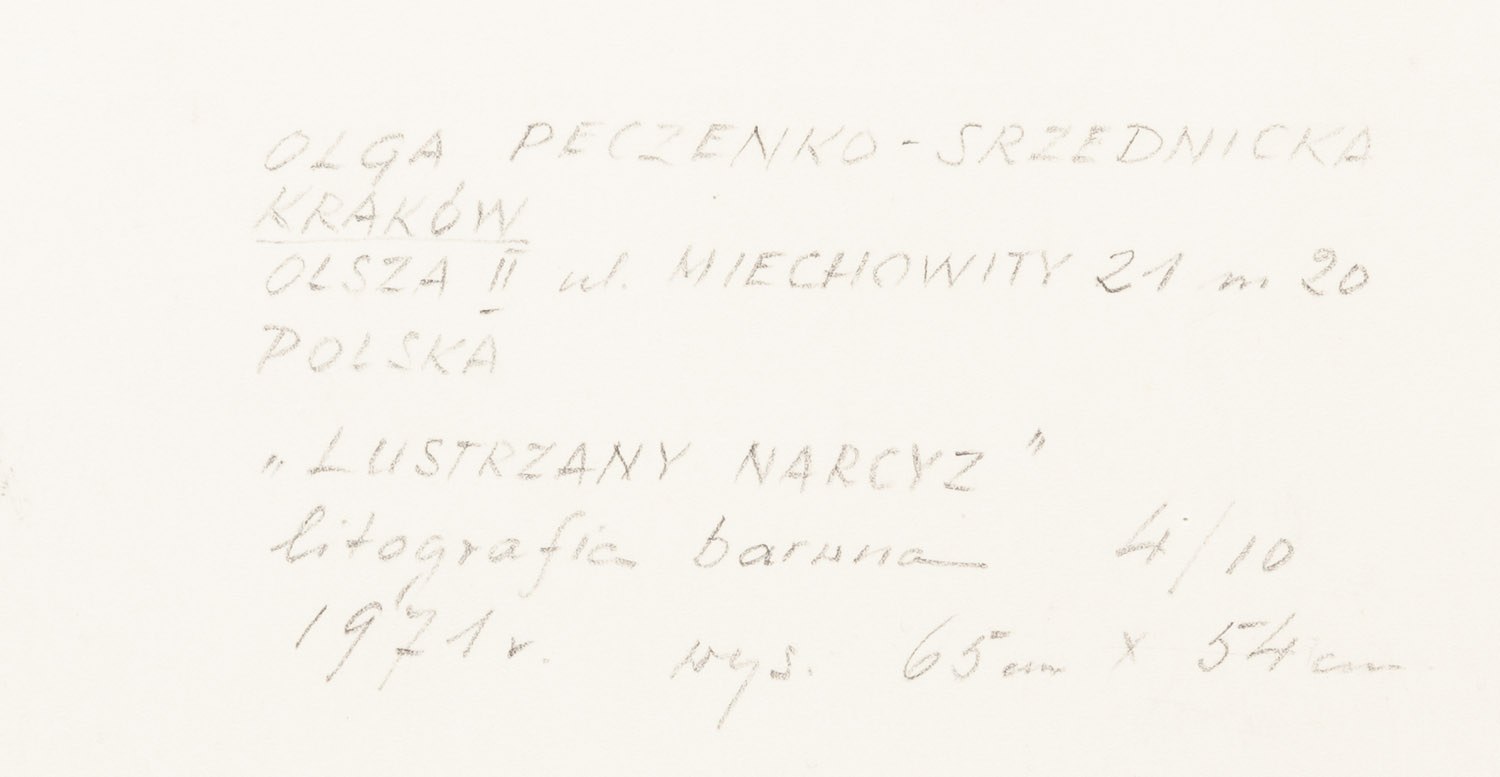 OLGA PECZENKO-SRZEDNICKA
KRAKÓW
OLSZA II ul. MIECHOWITY 21 m 20
POLSKA
„LUSTRZANY NARCYZ”
litografia barwna 4/10
1971 r. wys. 65 cm x 54 cm